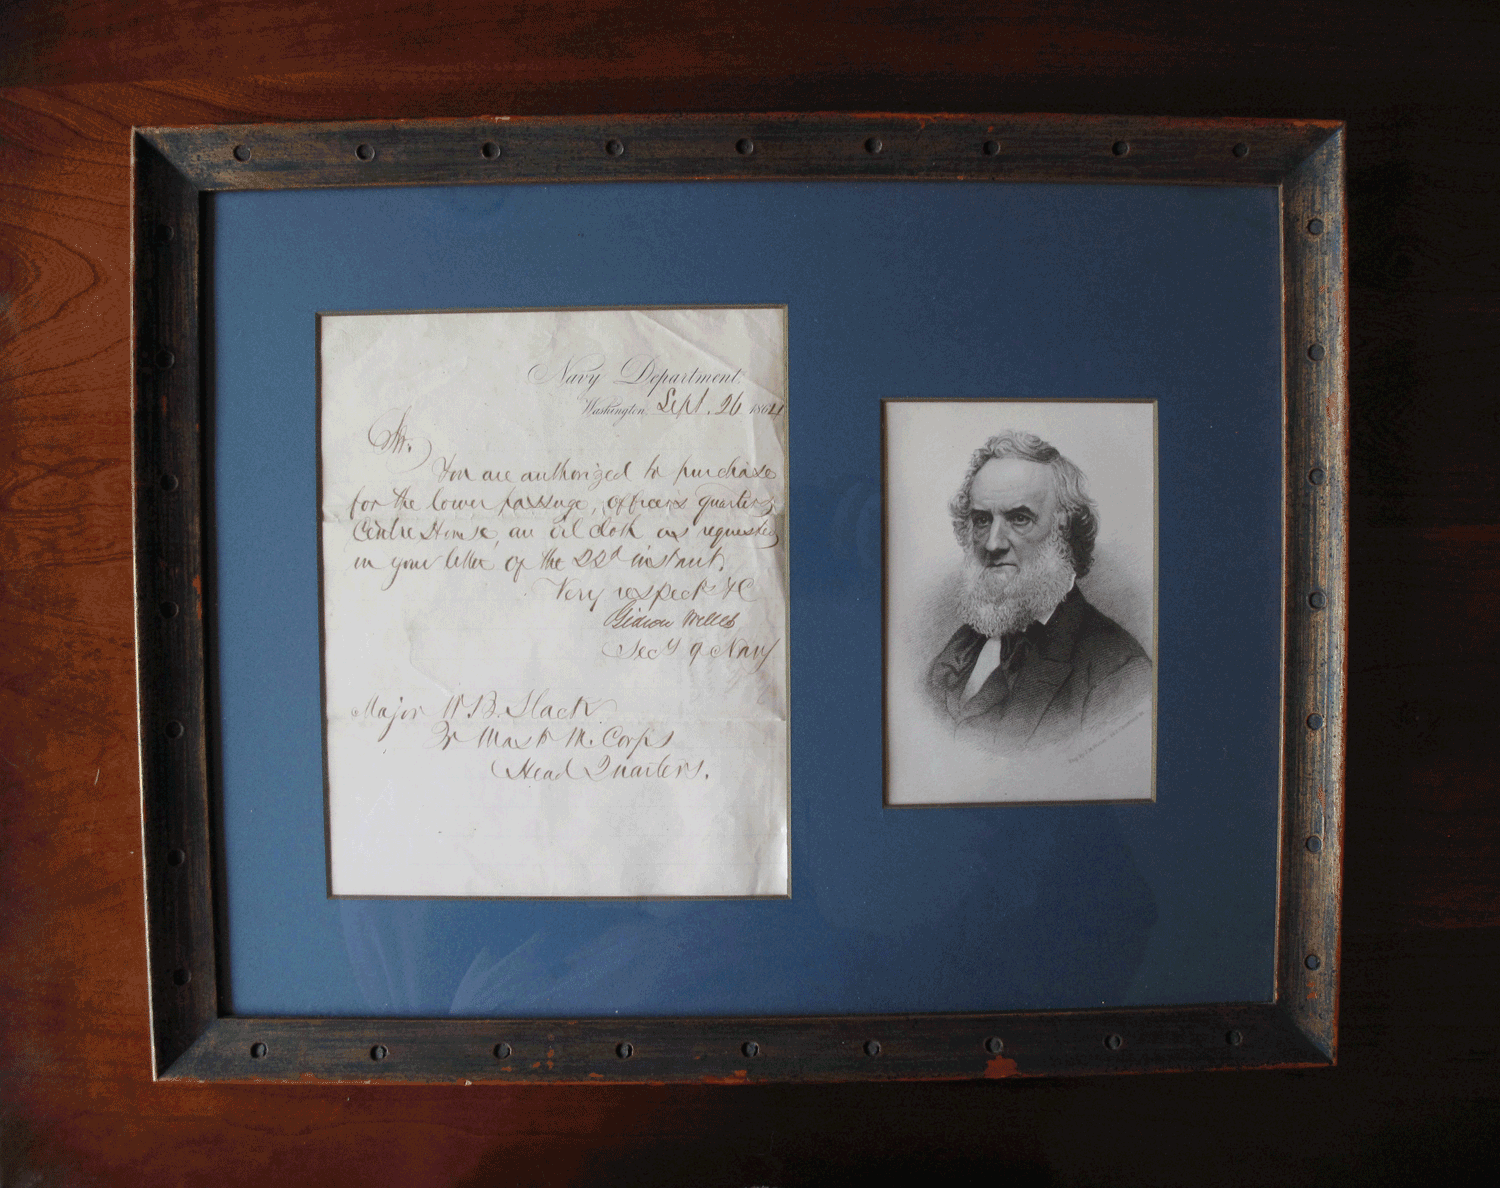 Navy Department,
Washington, Sept. 26 1864
Sir.
You are authorized to purchase
for the lower passage, officers quarters
Centre House, an oil cloth as requested
in your letter of the 22d instant.
Very respect. &C
Gideon Welles
Secy of Navy
Major W. B. Slack
Qr Mastr M. Corps
Head Quarters.